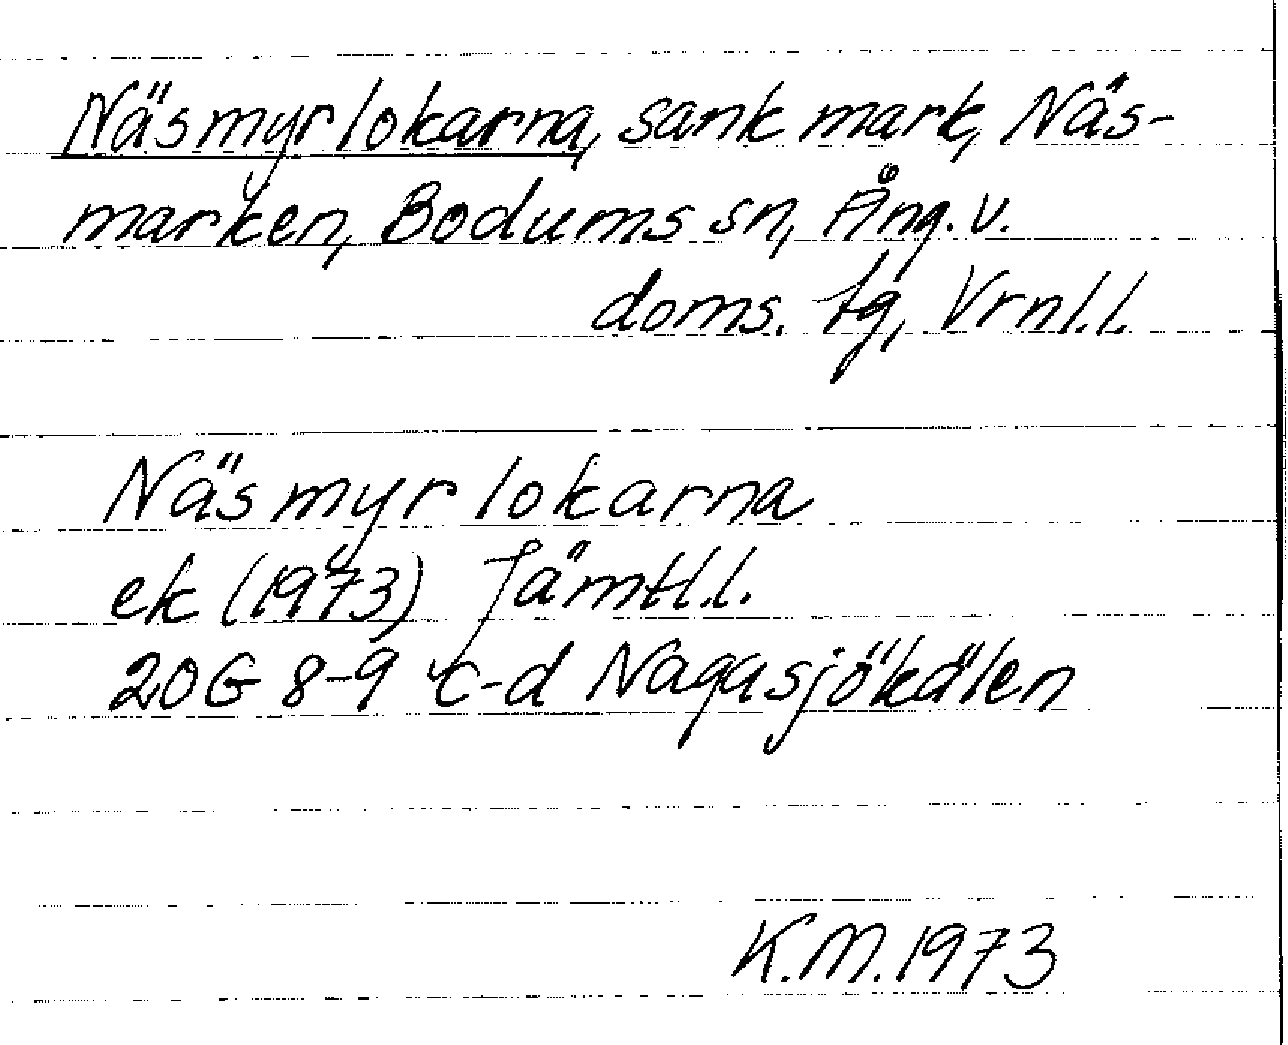 Näsmyrlokarna, sank mark, Näs-
marken, Bodums sn, Ång. v.
doms. tg, Vrnl.l.
Näsmyrlokarna
ek (1973) Jämtl.l.
20G 8-9 c-d Nagasjökölen
K.M. 1973